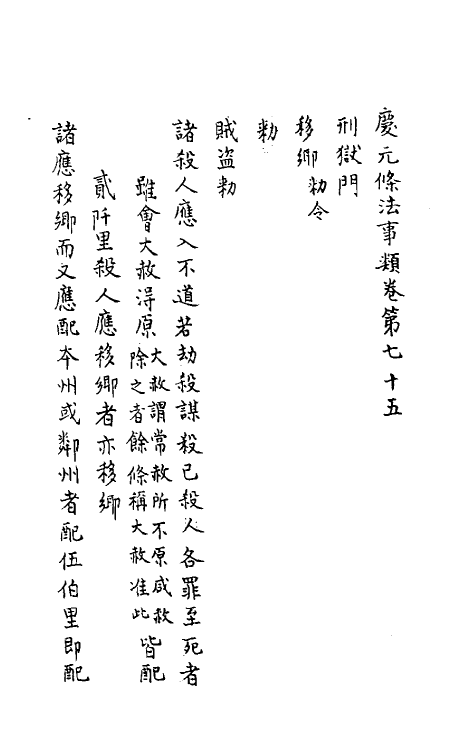 慶元條法事類卷第七十五
刑獄門
移鄉勑令
勑
賊盗勑
諸殺人應入不道若劫殺謀殺已殺人各罪至死者
雖會大赦淂原大赦謂常赦所不原咸赦
除之者餘條稱大赦准此皆配
貳阡里殺人應移鄉者亦移鄉
諸應移鄉而又應配本州或鄰州者配伍伯里即配